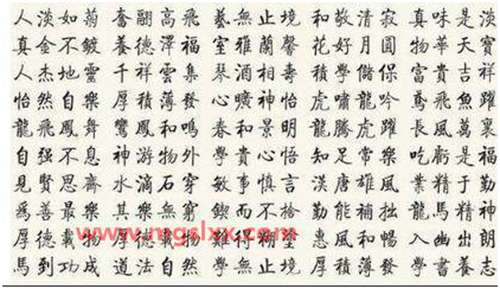 人淡如菊 奮翮高飛 藝無止境 和敬清寂 真味是淡
真金不鍍 養德澤福 室雅蘭馨 花好月圓 物華天寶
人杰地靈 千祥雲集 琴酒相壽 學儲保 富貴吉祥
怡然自樂 厚積薄發 心曠神怡 虎嘯龍吟 鳶飛魚躍
龍飛鳳舞 鸞鳳和鳴 春和景明 龍騰虎躍 長風萬裏
自强不息 神游物外 和貴心悟 知足常樂 吃虧是福
見賢思齋 水滴石穿 敏事慎言 漢唐雄風 業精于勤
爲善最樂 其樂無窮 鍥而不捨 勤能補拙 龍馬精神
厚德載物 厚德載物 難得糊塗 惠風和暢 入幽出朗
馬到功成 道法自然 學無止境 厚積薄發 學書養志
www.mgslxx.com